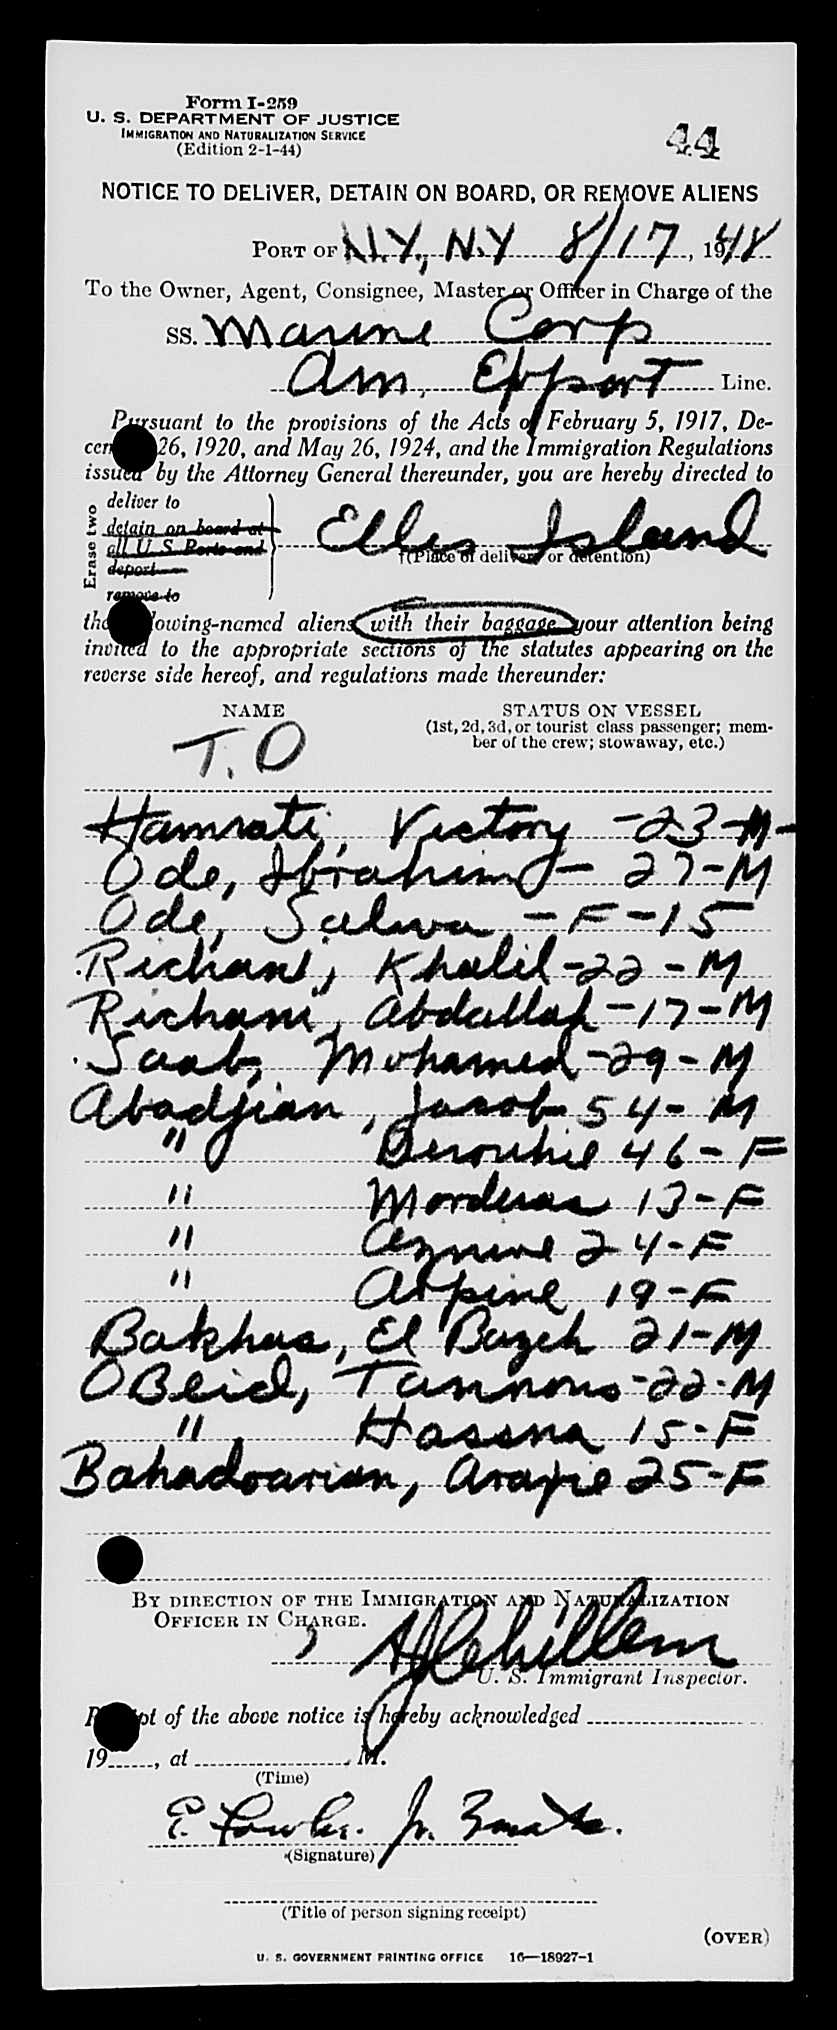 Form I-259
U. S. DEPARTMENT OF JUSTICE
IMMIGRATION AND NATURALIZATION SERVICE
(Edition 2-1-44)
44
NOTICE TO DELIVER, DETAIN ON BOARD, OR REMOVE ALIENS
PORT OF N.Y., N.Y 8/17, 1948
To the Owner, Agent, Consignee, Master or Officer in Charge of the
SS. Marine Corp
Am. Export Line.
Pursuant to the provisions of the Acts of February 5, 1917, De-
cem 26, 1920, and May 26, 1924, and the Immigration Regulations
issued by the Attorney General thereunder, you are hereby directed to
Erase two
deliver to
detain on board at
all U S Ports and
deport
remove to
Ellis Island
†(Place of delivery or detention)
the lowing-named aliens with their baggage your attention being
invited to the appropriate sections of the statutes appearing on the
reverse side hereof, and regulations made thereunder:
NAME
STATUS ON VESSEL
(1st, 2d, 3d, or tourist class passenger; mem-
ber of the crew; stowaway, etc.)
T.O
Hamrati, Victory - 23 - M -
Ode, Ibrahim - 27 - M
Ode, Salwa - F - 15
Richani, Khalil - 22 - M
Richani, Abdallah - 17 - M
Saab, Mohamed - 29 - M
Abadjian, Jacob 54 - M
" Berouhie 46 - F
" 13 - F
" Aznive 24 - F
" Arpine 19 - F
Bakhas, El Bazeh 21 - M
OBeid, Tannous - 22 - M
" Hassna 15 - F
Bahadoarian, Araxie 25 - F
BY DIRECTION OF THE IMMIGRATION AND NATURALIZATION
OFFICER IN CHARGE.
U. S. Immigrant Inspector.
R pt of the above notice is hereby acknowledged
19 , at , M.
(Time)
(Signature)
(Title of person signing receipt)
(OVER)
U. S. GOVERNMENT PRINTING OFFICE 16—18927-1